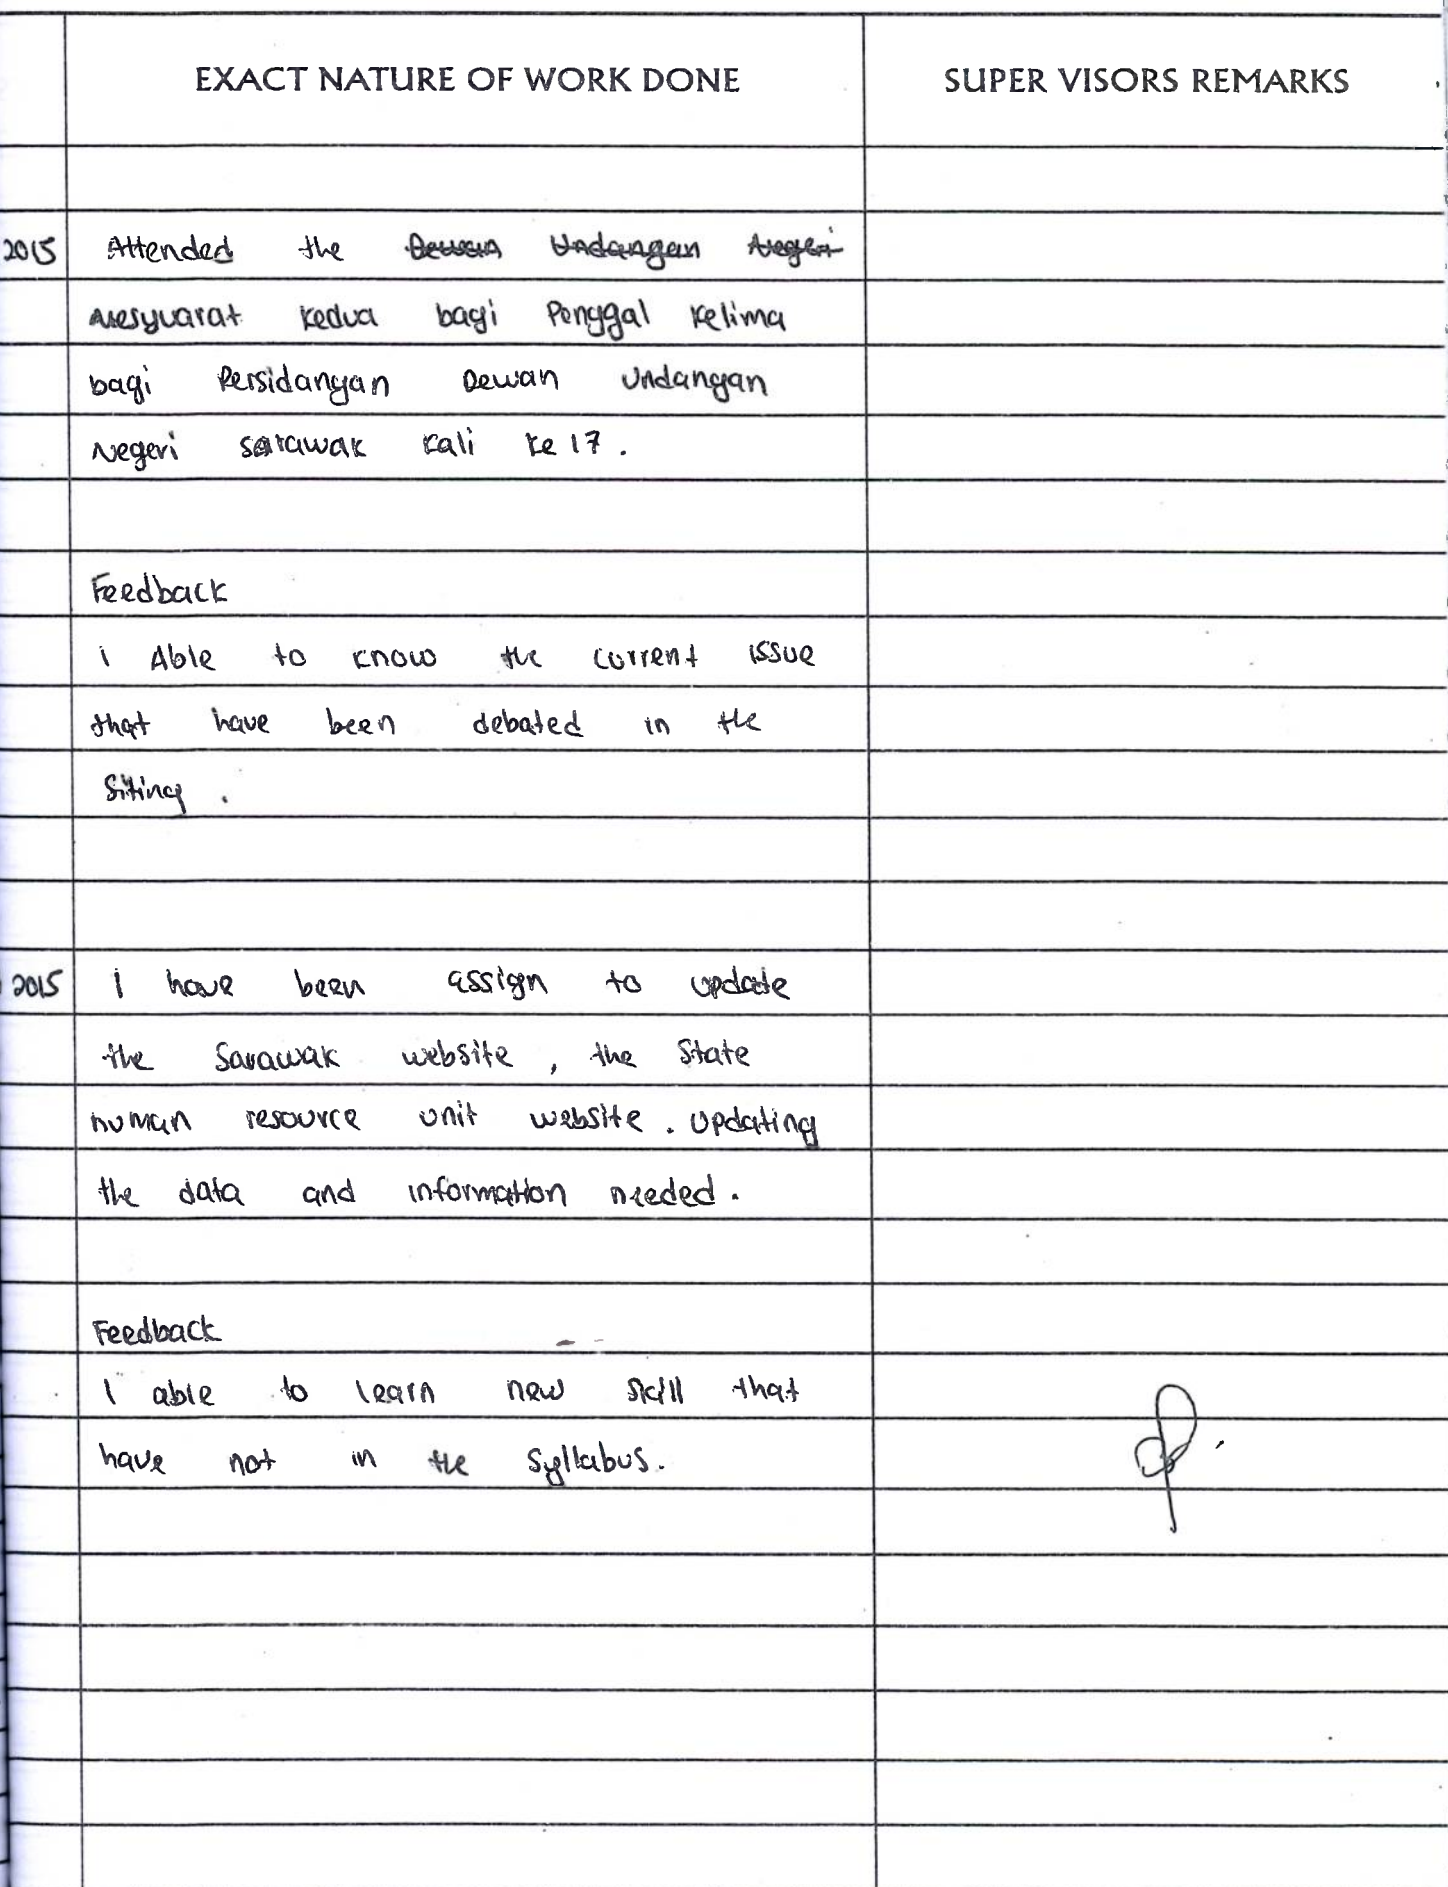 EXACT NATURE OF WORK DONE SUPER VISORS REMARKS
2015 Attended the Dewan Undangan Negeri
Mesyuarat kedua bagi Penggal kelima
bagi Persidangan Dewan Undangan
Negeri Sarawak kali ke 17.
Feedback
i Able to know the current issue
that have been debated in the
Siting.
2015 I have been assign to update
the Sarawak website, the State
human resource unit website. Updating
the data and information needed.
Feedback
I able to learn new skill that
have not in the syllabus.